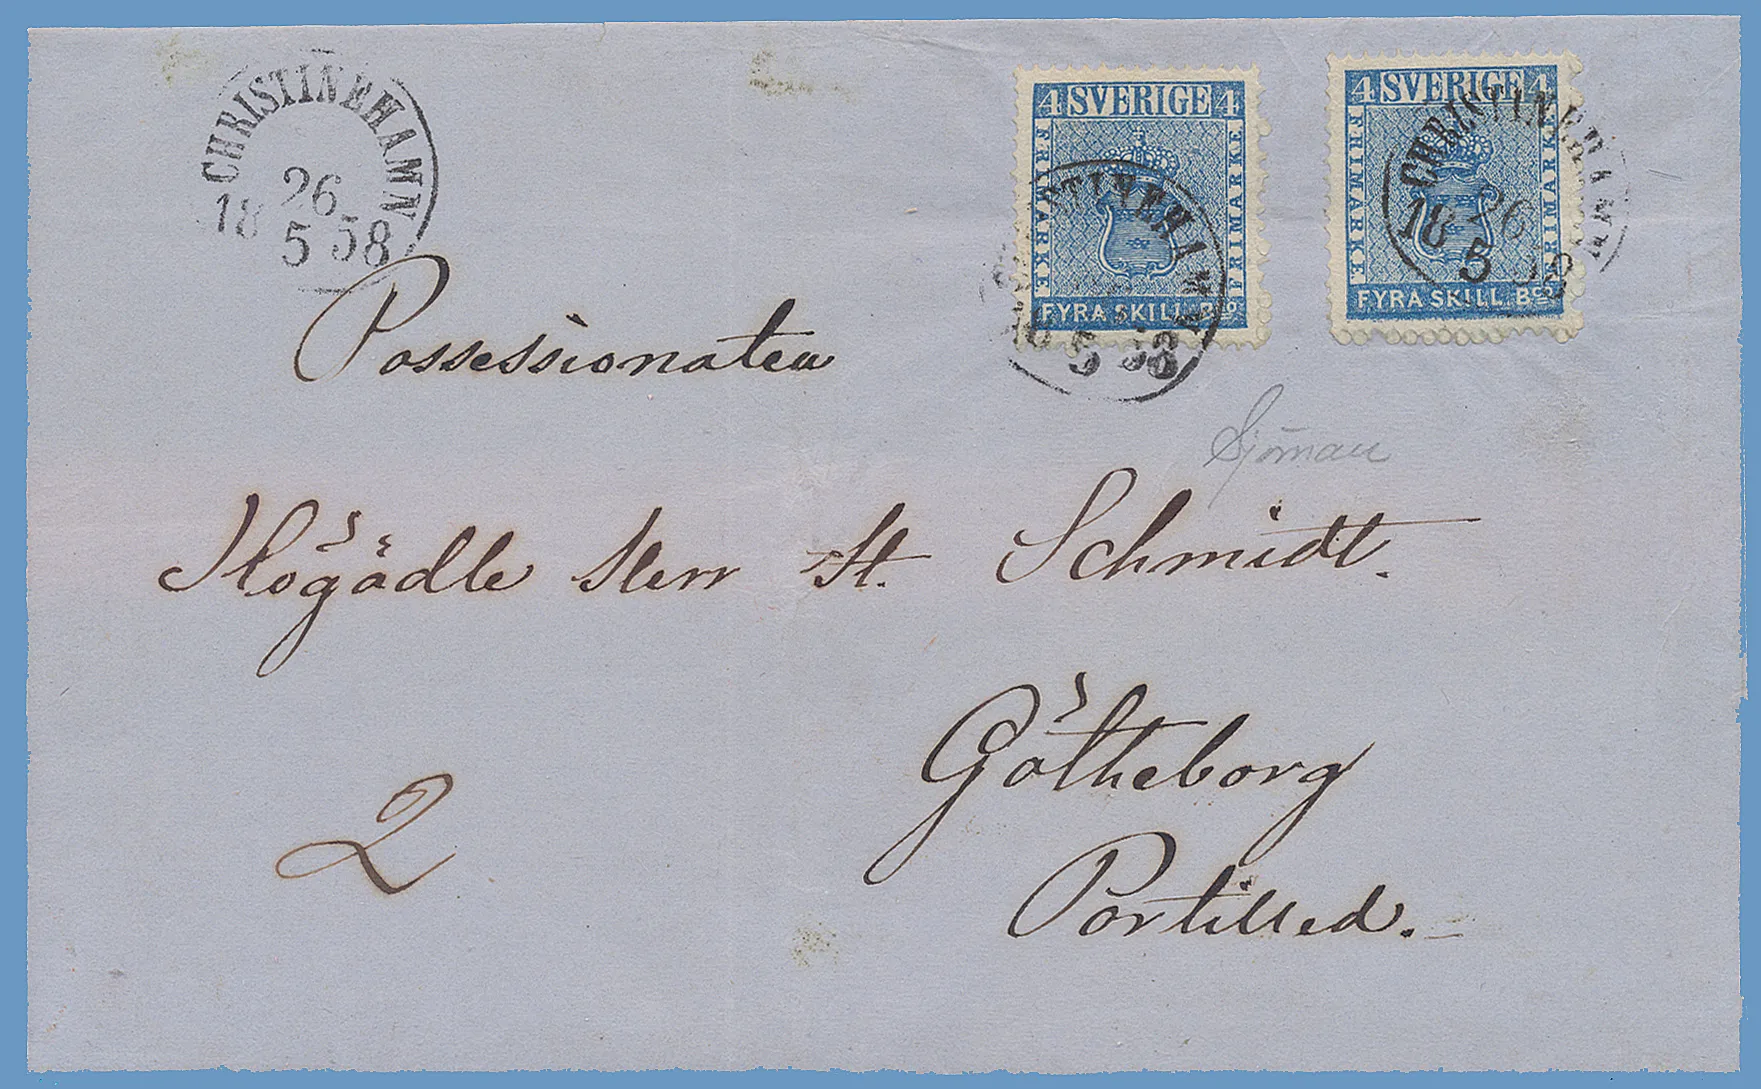 CHRISTINEHAMN
26
18 5 58
4 SVERIGE 4
FRIMARKE
FRIMARKE
FYRA SKILL. Bco
4 SVERIGE 4
FRIMARKE
FRIMARKE
FYRA SKILL. Bco
STINEHAMN
5 58
CHRISTINEHAMN
26
18 5 58
Possessionaten
Sjöman
Högädle Herr H. Schmidt.
Götheborg
2
Portilled.